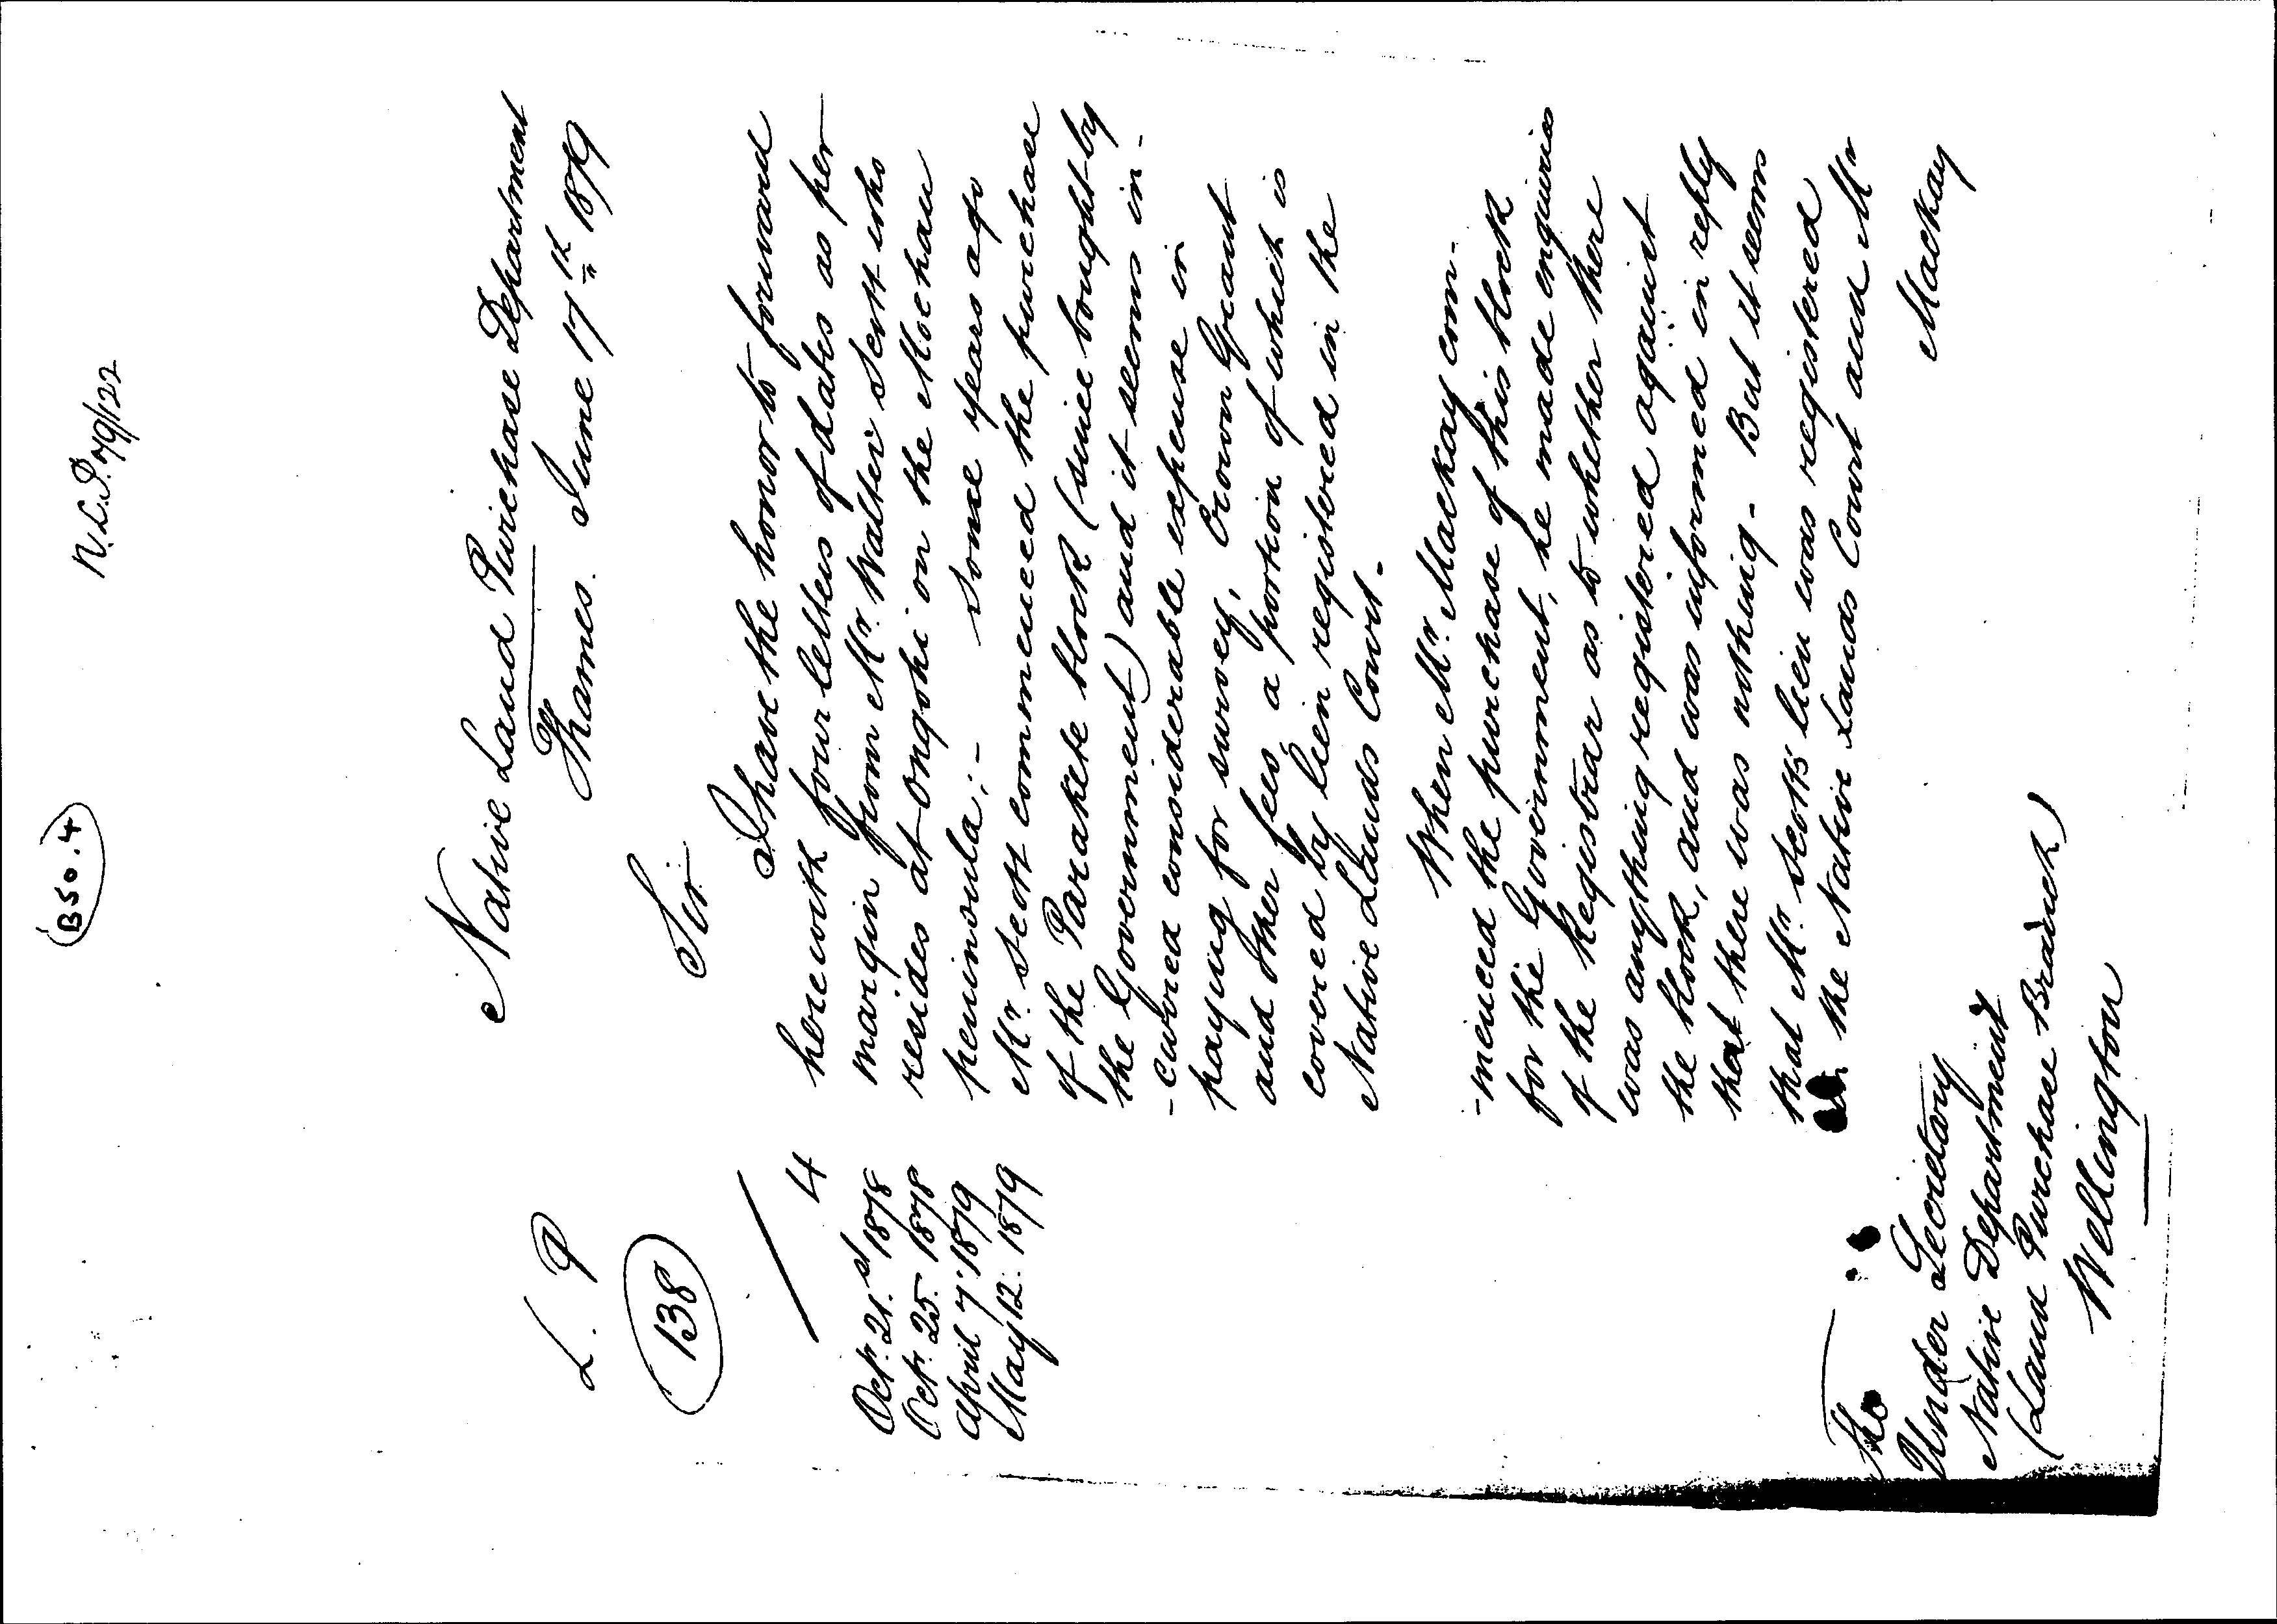 B50.4
N.L.P. 79/122
Native Land Purchase Department
Thames. June 17th 1879
L. P
138
Sir
I have the honor to forward
herewith four letters of dates as per
margin from Mr. Walter Scott who
resides at Ongohi on the Moehau
peninsula;- Some years ago
Mr. Scott commenced the purchase
of the Parakete block (since bought by
the Government) and it seems in-
-curred considerable expense in
paying for survey, Crown Grant
and other fees, a portion of which is
covered by lien registered in the
Native Lands Court.-
4
Octr. 21.st 1878
Octr. 25. 1878
April 7. 1879
May 12. 1879
When Mr. Mackay com-
-menced the purchase of this block
for the Government, he made enquiries
of the Registrar as to whether there
was anything registered against
the block, and was informed in reply
that there was nothing - But it seems
that Mr. Scotts lien was registered
in the Native Lands Court and Mr
Mackay
The
Under Secretary
Native Department
(Land Purchase Branch)
Wellington